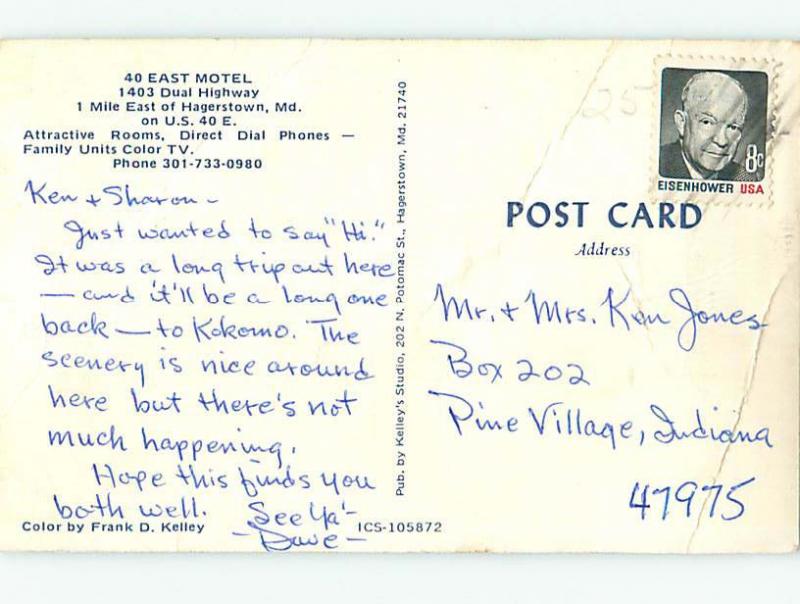 40 EAST MOTEL
1403 Dual Highway
1 Mile East of Hagerstown, Md.
on U.S. 40 E.
Attractive Rooms, Direct Dial Phones —
Family Units Color TV.
Phone 301-733-0980
Ken + Sharon -
Just wanted to say "Hi."
It was a long trip out here
— and it'll be a long one
back — to Kokomo. The
scenery is nice around
here but there's not
much happening.
Hope this finds you
both well. See Ya'-
- Dave -
Color by Frank D. Kelley
ICS-105872
Pub. by Kelley's Studio, 202 N. Potomac St., Hagerstown, Md. 21740
25
8c
EISENHOWER USA
POST CARD
Address
Mr. + Mrs. Ken Jones
Box 202
Pine Village, Indiana
47975